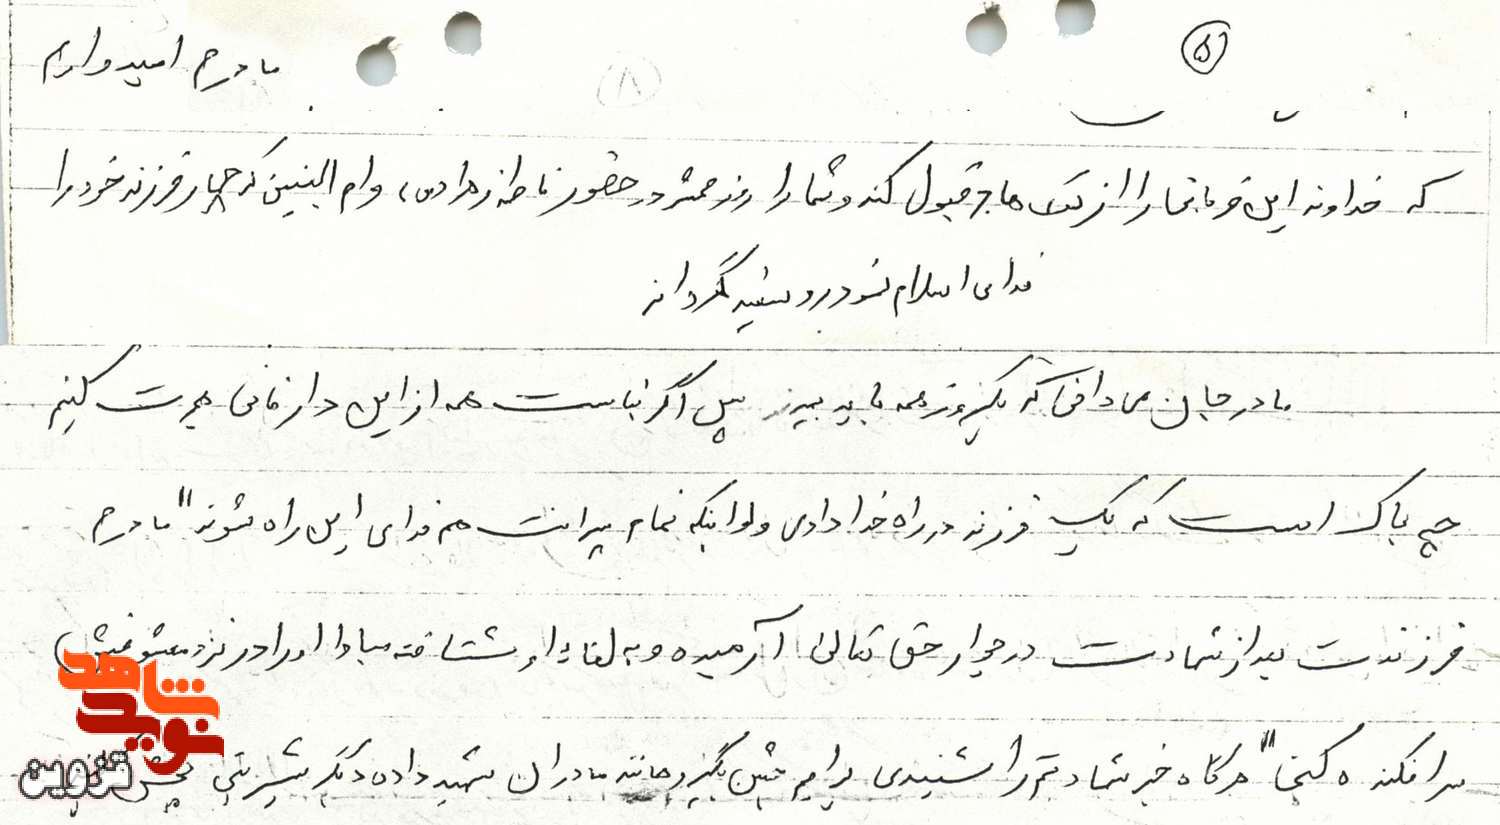 ۵
مادرم امیدوارم
۸
که خداوند این قربانی را از یک هاجر قبول کند و شما را روز محشر در حضور فاطمه زهرا و ام البنین که چهار فرزند خود را
فدای اسلام نمود رو سفید گرداند
مادر جان می دانی که یکروز همه باید بمیرند پس اگر بناست همه از این دار فانی هجرت کنیم
چه باک است که یک فرزند در راه خدا دادی ولو اینکه تمام پسرانت هم فدای این راه شوند " مادرم
فرزندت بعد از شهادت در جوار حق تعالی آرمیده و به لقاء او شتافته مبادا او را در نزد معشوقش
سرافکنده کنی " هرگاه خبر شهادتم را شنیدی برایم جشن بگیر و مانند مادران شهید داده دیگر شیرینی پخش
شاهد
نوید
قزوین